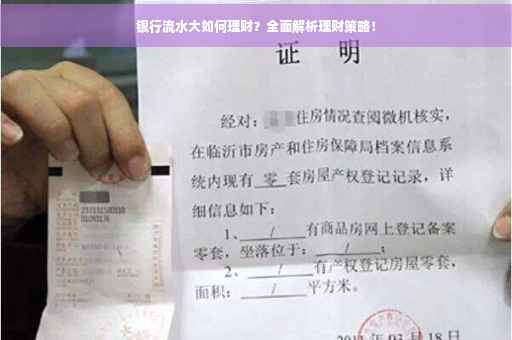 银行流水大如何理财？全面解析理财策略！
证 明
经对：住房情况查阅微机核实，
在临沂市房产和住房保障局档案信息系
统内现有 零 套房屋产权登记记录，详
细信息如下：
1、 / 有商品房网上登记备案
零套，坐落位于： / ；
2、 / 有产权登记房屋零套，
面积： / 平方米。
03 月 18 日